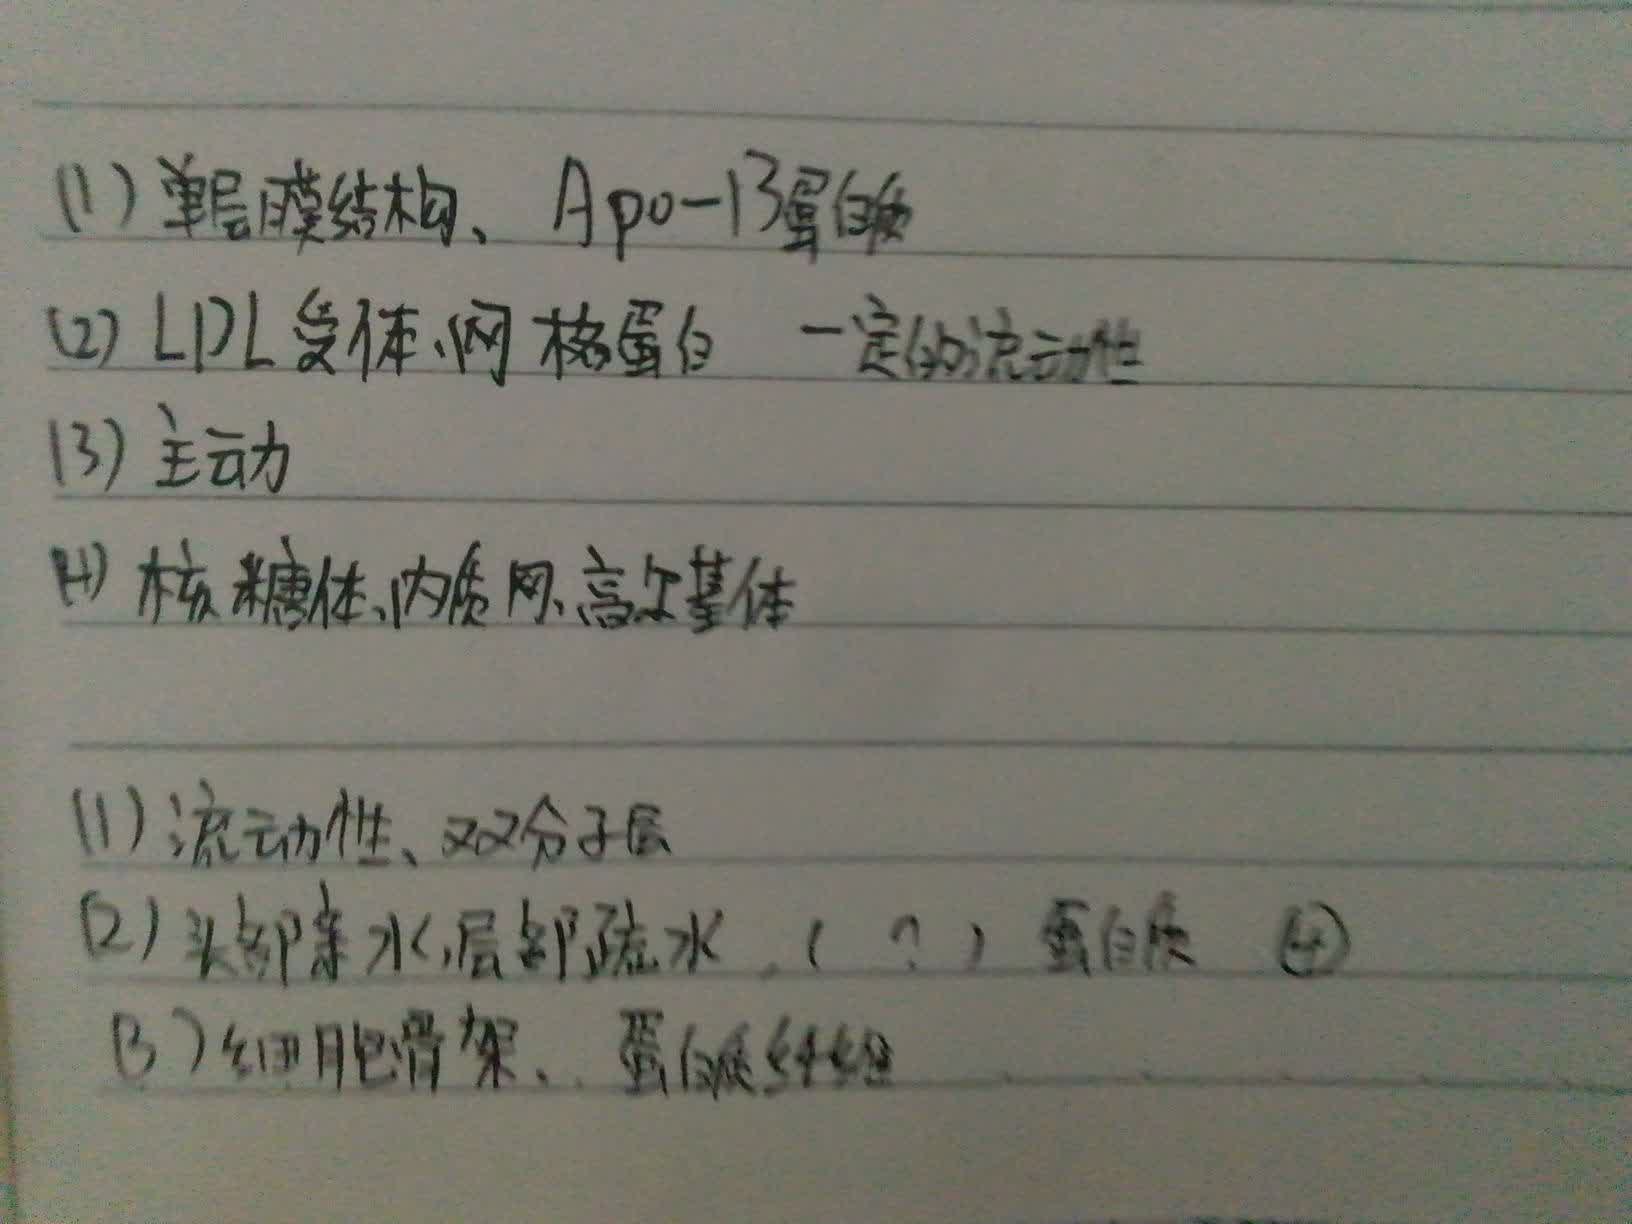 (1) 单层膜结构、Apo-B蛋白质
(2) LDL受体、网格蛋白 一定的流动性
(3) 主动
(4) 核糖体、内质网、高尔基体
(1) 流动性、双分子层
(2) 头部亲水,尾部疏水 ( ? ) 蛋白质 ④
(3) 细胞骨架、蛋白质纤维